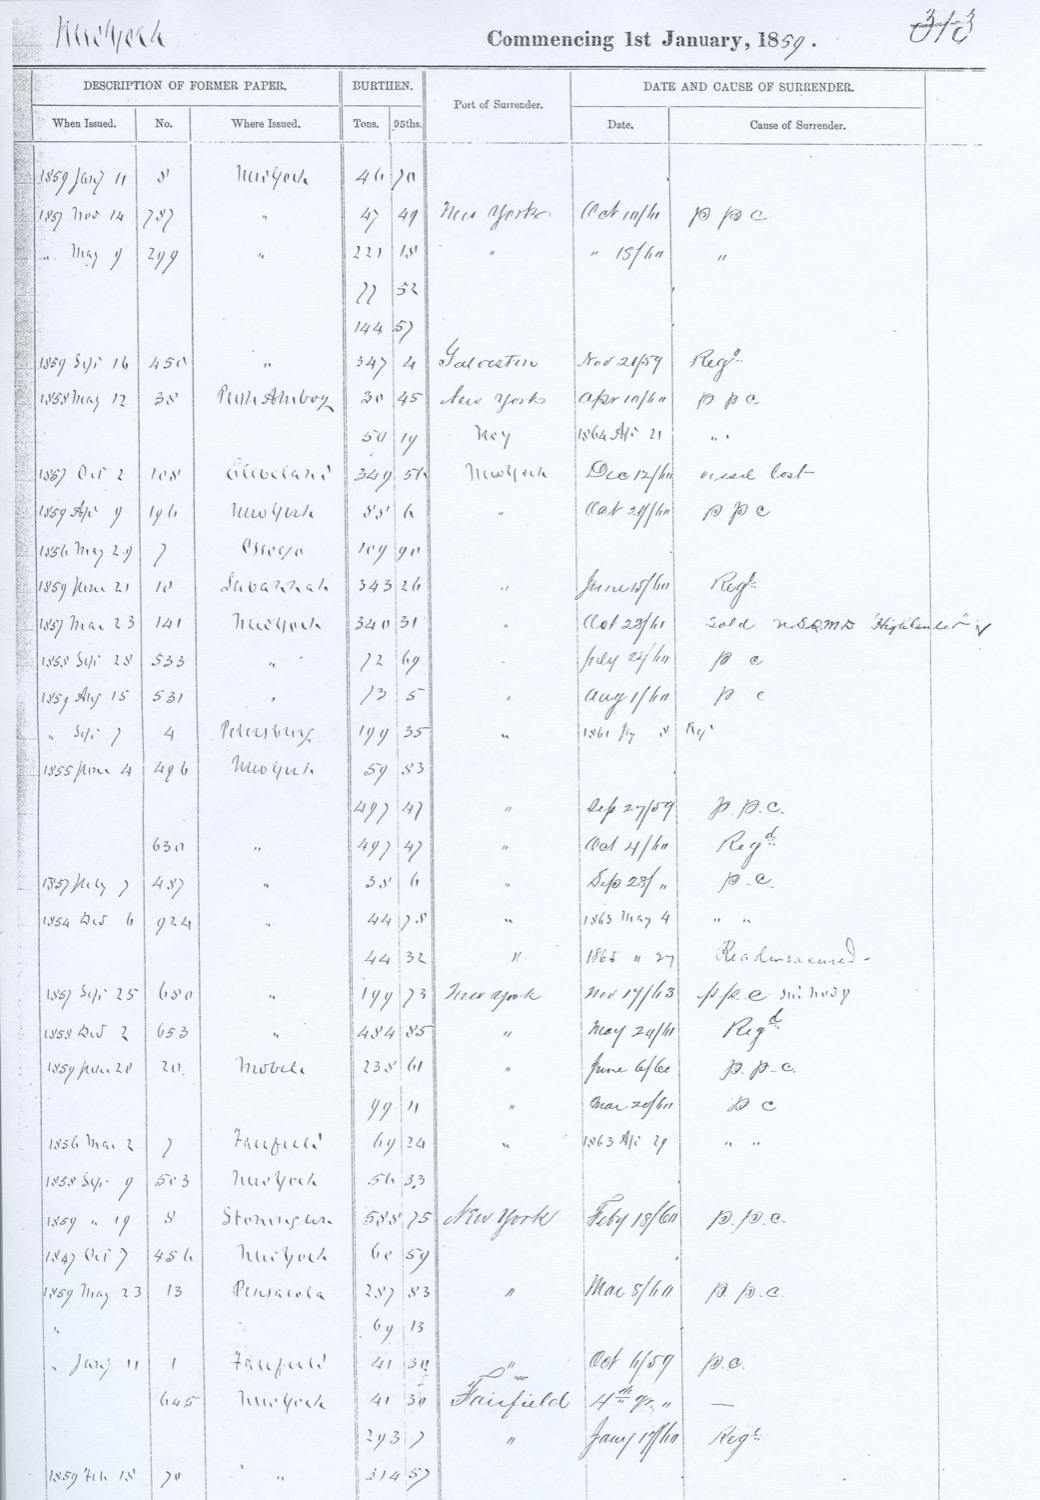 New York
Commencing 1st January, 1859.
313
DESCRIPTION OF FORMER PAPER. BURTHEN. Port of Surrender. DATE AND CAUSE OF SURRENDER.
When Issued. No. Where Issued. Tons. 95ths. Date. Cause of Surrender.
1859 Jany 11 8 New York 46 70
1857 Nov 14 787 " 47 49 New York Oct 10/60 p p c
" May 9 299 " 221 18 " " 15/60 "
77 52
144 57
1859 Sep 16 450 " 347 4 Galveston Nov 21/59 Regd
1858 May 12 38 Perth Amboy 30 45 New York Apr 10/60 p p c
50 19 1864 Apr 21 " "
1857 Oct 2 108 Cleveland 349 56 New York Dec 12/60 vessel lost
1859 Apr 9 196 New York 88 6 " Oct 29/60 p p c
1856 May 29 7 Oswego 109 90
1859 June 21 10 Savannah 343 26 " June 15/60 Regd
1857 Mar 23 141 New York 340 31 " Oct 28/61 Sold "Highlander"
1858 Sep 28 533 " 72 69 July 24/60 p c
1859 Aug 15 531 " 73 5 " Aug 1/60 p c
" Sep 7 4 Petersburg 199 35 " 1861 8 Reg
1855 June 4 496 New York 59 83
497 47 " Sep 27/59 p.p.c.
630 " 497 47 " Oct 4/60 Regd
1857 July 7 487 " 38 6 " Sep 28/" p.c.
1854 Dec 6 924 " 44 78 " 1863 May 4 " "
44 32 " 1865 " 27 Readmeasured
1857 Sep 25 680 " 199 73 New York Nov 17/63 p.p.c
1858 Dec 2 653 " 484 85 " May 24/61 Regd
1859 June 20 20 Mobile 238 61 " June 6/60 p.p.c.
99 11 " Mar 20/60 p c
1856 Mar 2 7 Fairfield 69 24 " 1863 Apr 29 " "
1858 Sep 9 503 New York 56 33
1859 " 19 8 Stonington 588 75 New York Feby 18/60 p.p.c.
1847 Oct 7 456 New York 60 59
1859 May 23 13 Pensacola 287 83 " Mar 5/60 p.p.c.
" 69 13
" Jany 11 1 Fairfield 41 30 " Oct 6/59 p.c.
645 New York 41 30 Fairfield 4th qr " —
293 7 " Jany 17/60 Regd
1859 Feb 18 70 " 314 57